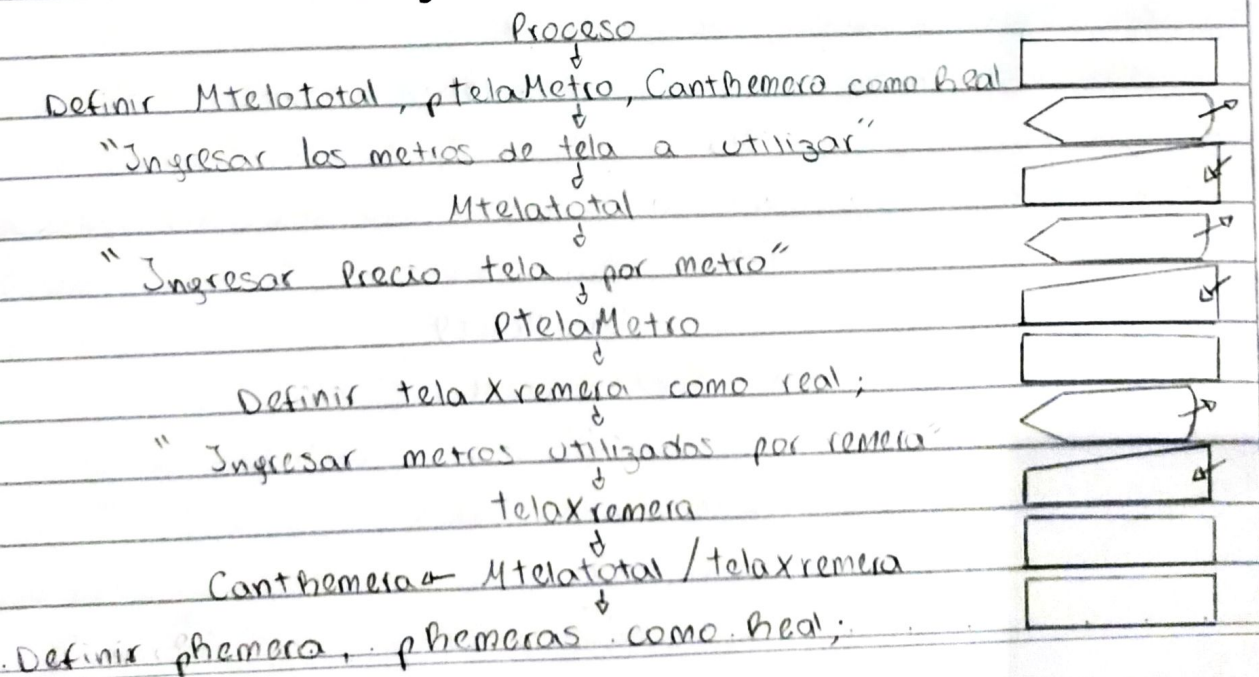 Proceso
Definir Mtelototal, ptelaMetro, CantRemera como Real
"Ingresar los metros de tela a utilizar"
Mtelatotal
"Ingresar Precio tela por metro"
PtelaMetro
Definir telaXremera como real;
"Ingresar metros utilizados por remera"
telaXremera
CantRemera← Mtelatotal/telaxremera
Definir pRemera, pRemeras como Real;